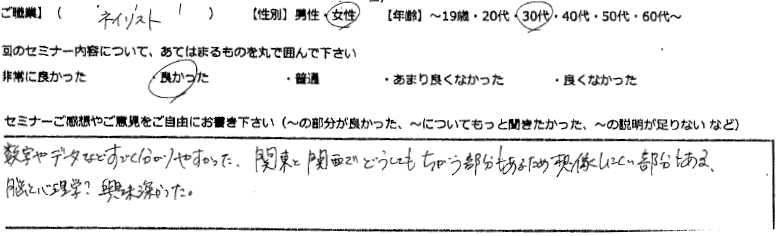 ご職業】( ネイリスト ) 【性別】男性・女性 【年齢】〜19歳・20代・30代・40代・50代・60代〜
回のセミナー内容について、あてはまるものを丸で囲んで下さい
非常に良かった ・良かった ・普通 ・あまり良くなかった ・良くなかった
セミナーご感想やご意見をご自由にお書き下さい(〜の部分が良かった、〜についてもっと聞きたかった、〜の説明が足りない など)
数字やデータなどすごく分かりやすかった、関東と関西でどうしてもちがう部分もあるため想像しにくい部分もある、
脳と心理学?興味深かった。